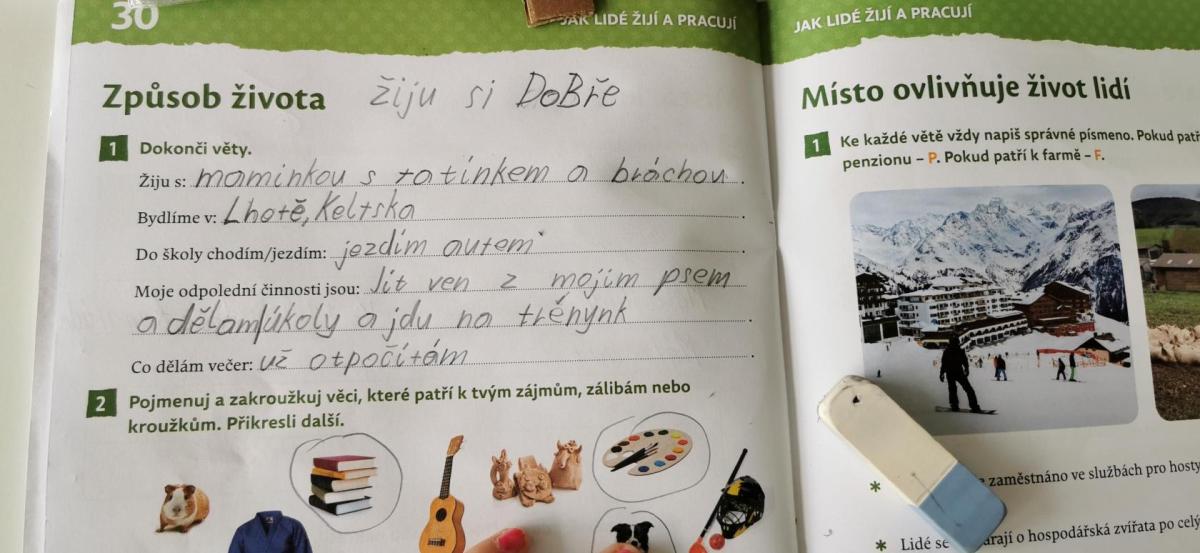 30
JAK LIDÉ ŽIJÍ A PRACUJÍ
Způsob života žiju si DoBře
1 Dokonči věty.
Žiju s: maminkou s tatínkem a bráchou.
Bydlíme v: Lhotě, Keltska.
Do školy chodím/jezdím: jezdím autem.
Moje odpolední činnosti jsou: Jít ven z mojim psem
a dělam úkoly a jdu na trénynk.
Co dělám večer: už otpočítám.
2 Pojmenuj a zakroužkuj věci, které patří k tvým zájmům, zálibám nebo
kroužkům. Přikresli další.
JAK LIDÉ ŽIJÍ A PRACUJÍ
Místo ovlivňuje život lidí
1 Ke každé větě vždy napiš správné písmeno. Pokud patř
penzionu – P. Pokud patří k farmě – F.
* zaměstnáno ve službách pro hosty
* Lidé se o hospodářská zvířata po celý